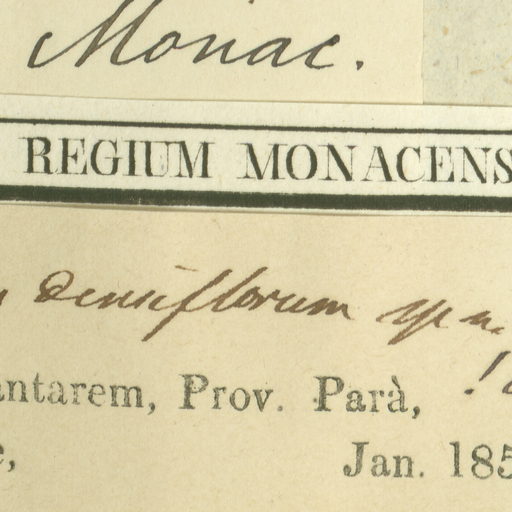 Monac.
REGIUM MONACENS
densiflorum sp n.
antarem, Prov. Parà, !
e, Jan. 185